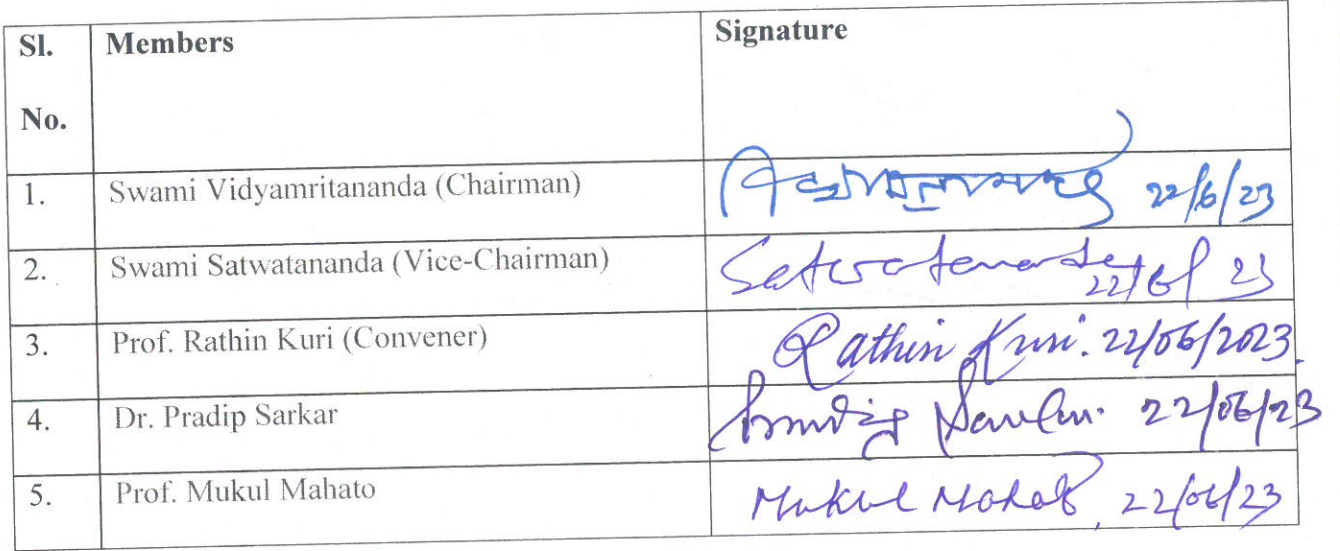 Sl. No. Members Signature
1. Swami Vidyamritananda (Chairman) 22/6/23
2. Swami Satwatananda (Vice-Chairman) Satwatananda 22/6/23
3. Prof. Rathin Kuri (Convener) Rathin Kuri. 22/06/2023.
4. Dr. Pradip Sarkar Pradip Sarkar. 22/06/23
5. Prof. Mukul Mahato Mukul Mahato, 22/06/23